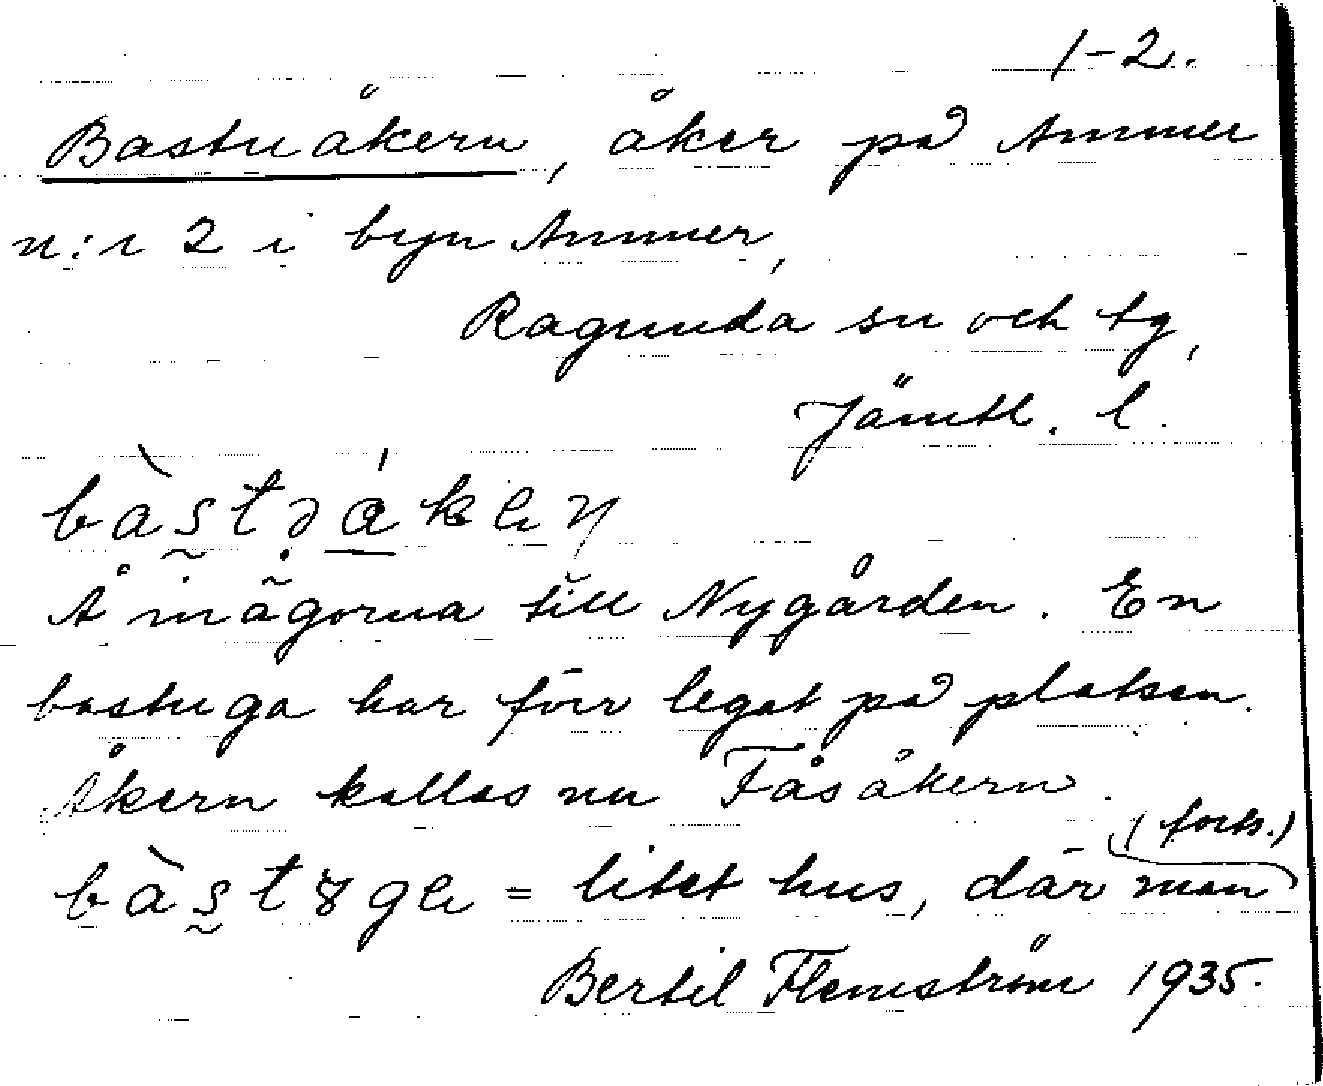 1-2.
Bastuåkern, åker på Ammer
n:r 2 i byn Ammer,
Ragunda sn och tg,
Jämtl. l.
Å inägorna till Nygården. En
bastuga har förr legat på platsen.
Åkern kallas nu Fäsåkern.
(forts.)
= litet hus, där man
Bertil Flemström 1935.